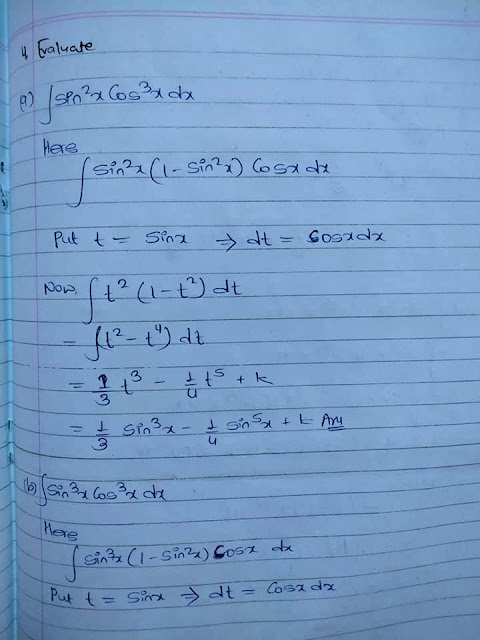 4. Evaluate
(a) ∫sin²x cos³x dx
Here
∫sin²x (1 - sin²x) cosx dx
Put t = sinx ⇒ dt = cosx dx
Now, ∫t² (1 - t²) dt
= ∫(t² - t⁴) dt
= 1/3 t³ - 1/4 t⁵ + k
= 1/3 sin³x - 1/4 sin⁵x + k Ans
(b) ∫sin³x cos³x dx
Here
∫sin³x (1 - sin²x) cosx dx
Put t = sinx ⇒ dt = cosx dx